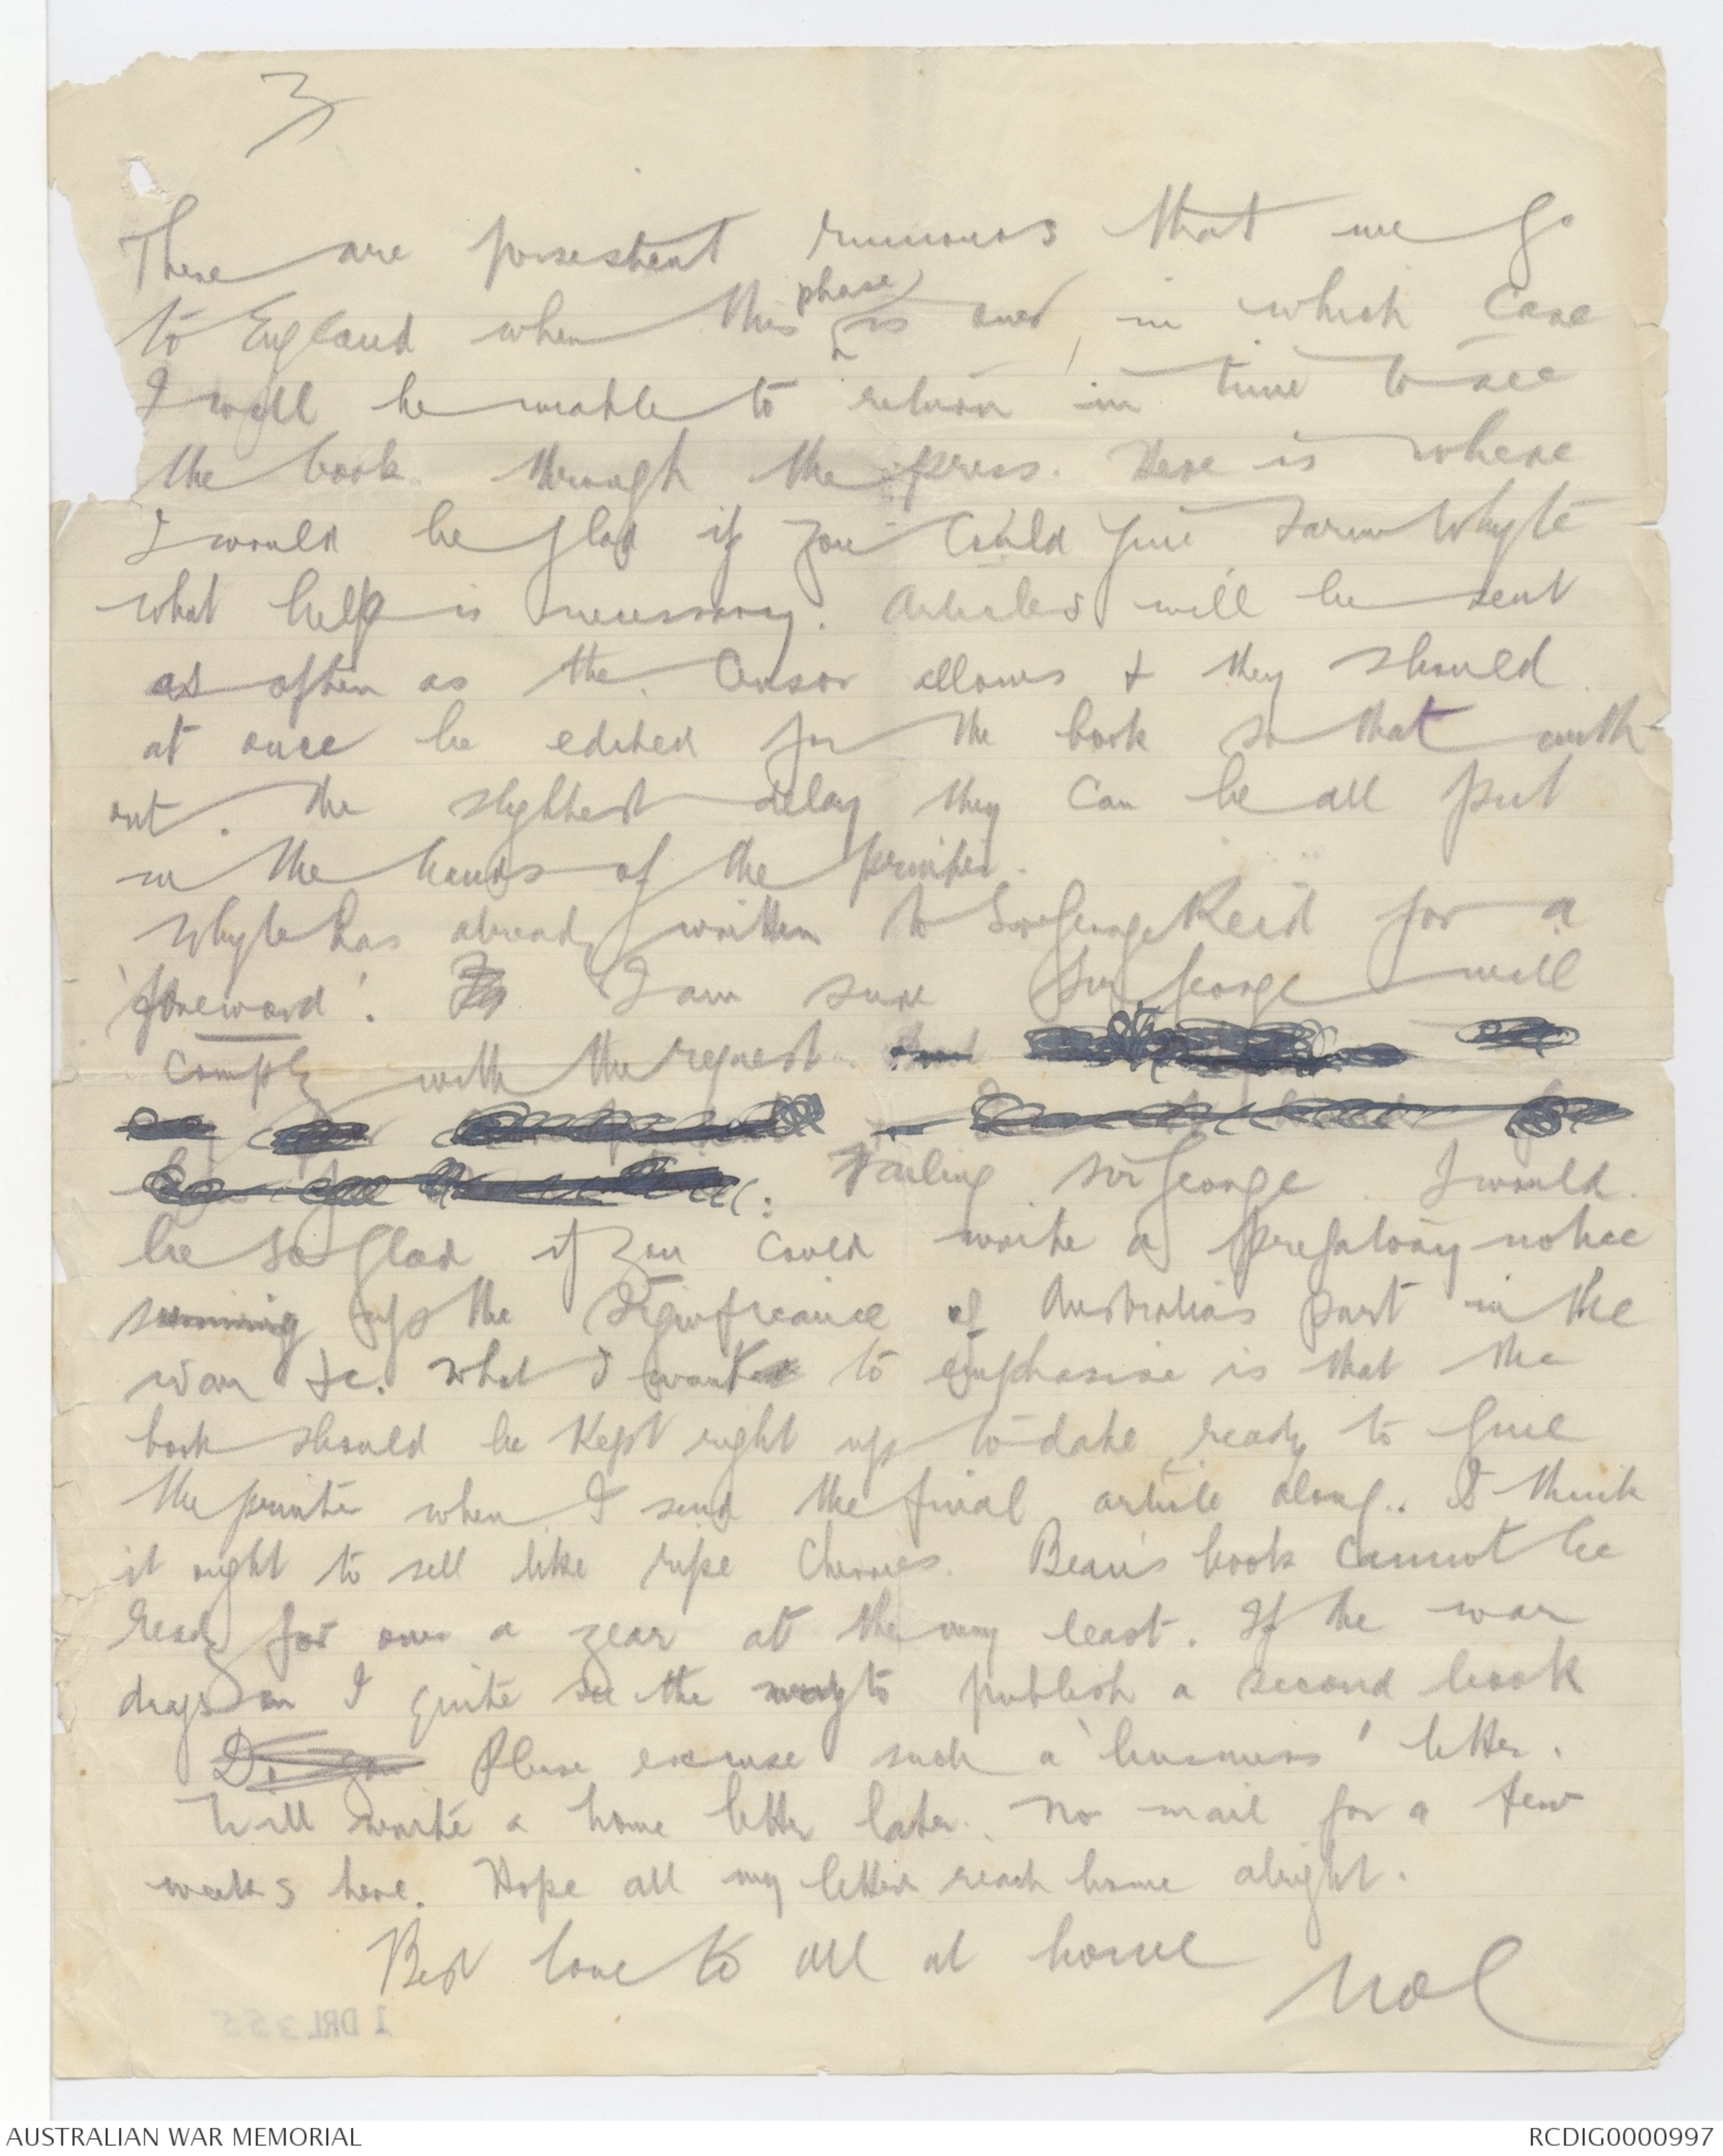 3
There are persestent rumours that we go
to England when this phase is over, in which case
I will be unable to return in time to see
the book through the press. Here is where
I would be glad if you could give Farm Whyte
what help is necessary. Articles will be sent
as often as the Censor allows & they should
at once be edited for the book so that with-
out the slightest delay they can be all put
in the hands of the printer.
Whyte has already written to Sir George Reid for a
'foreword'. I am sure Sir George will
comply with the request.
Failing Sir George I would
be so glad if you could write a prefatory notice
summing up the significance of Australia's part in the
war &c. What I want to emphasise is that the
book should be kept right up to date ready to give
the printer when I send the final article along. I think
it ought to sell like ripe cherries. Bean's book cannot be
ready for over a year at the very least. If the war
drags on I quite see the way to publish a second book
Please excuse such a 'business' letter.
Will write a home letter later. No mail for a few
weeks here. Hope all my letters reach home alright.
Best love to all at home
Noel
1 DRL 355
AUSTRALIAN WAR MEMORIAL
RCDIG0000997